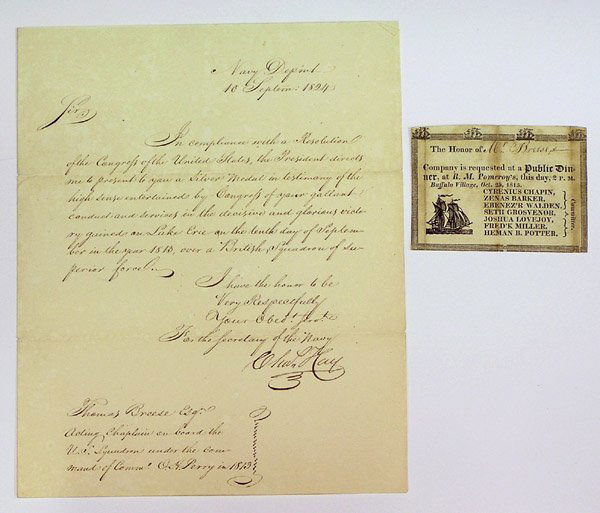 Navy Depmt
10 Septem: 1824
Sir,
In compliance with a Resolution
of the Congress of the United States, the President directs
me to present to you a Silver Medal in testimony of the
high sense entertained by Congress of your gallant
conduct and services in the decisive and glorious victo
ry gained on Lake Erie on the tenth day of Septem
ber in the year 1813, over a British Squadron of su
perior force.
I have the honor to be
Very Respectfully
Your Obedt. Servt.
For the Secretary of the Navy
Chas. Hay
Thomas Breese Esqr.
Acting Chaplain on board the
U.S. Squadron under the com
mand of Commo. O.H. Perry in 1813
The Honor of Mr. Breese
Company is requested at a Public Din-
ner, at R. M. Pomeroy's, this day, 2 P. M.
Buffalo Village, Oct. 25, 1813.
CYRENIUS CHAPIN,
ZENAS BARKER,
EBENEZ'R WALDEN,
SETH GROSVENOR,
JOSHUA LOVEJOY,
FRED'K MILLER,
HEMAN B. POTTER.